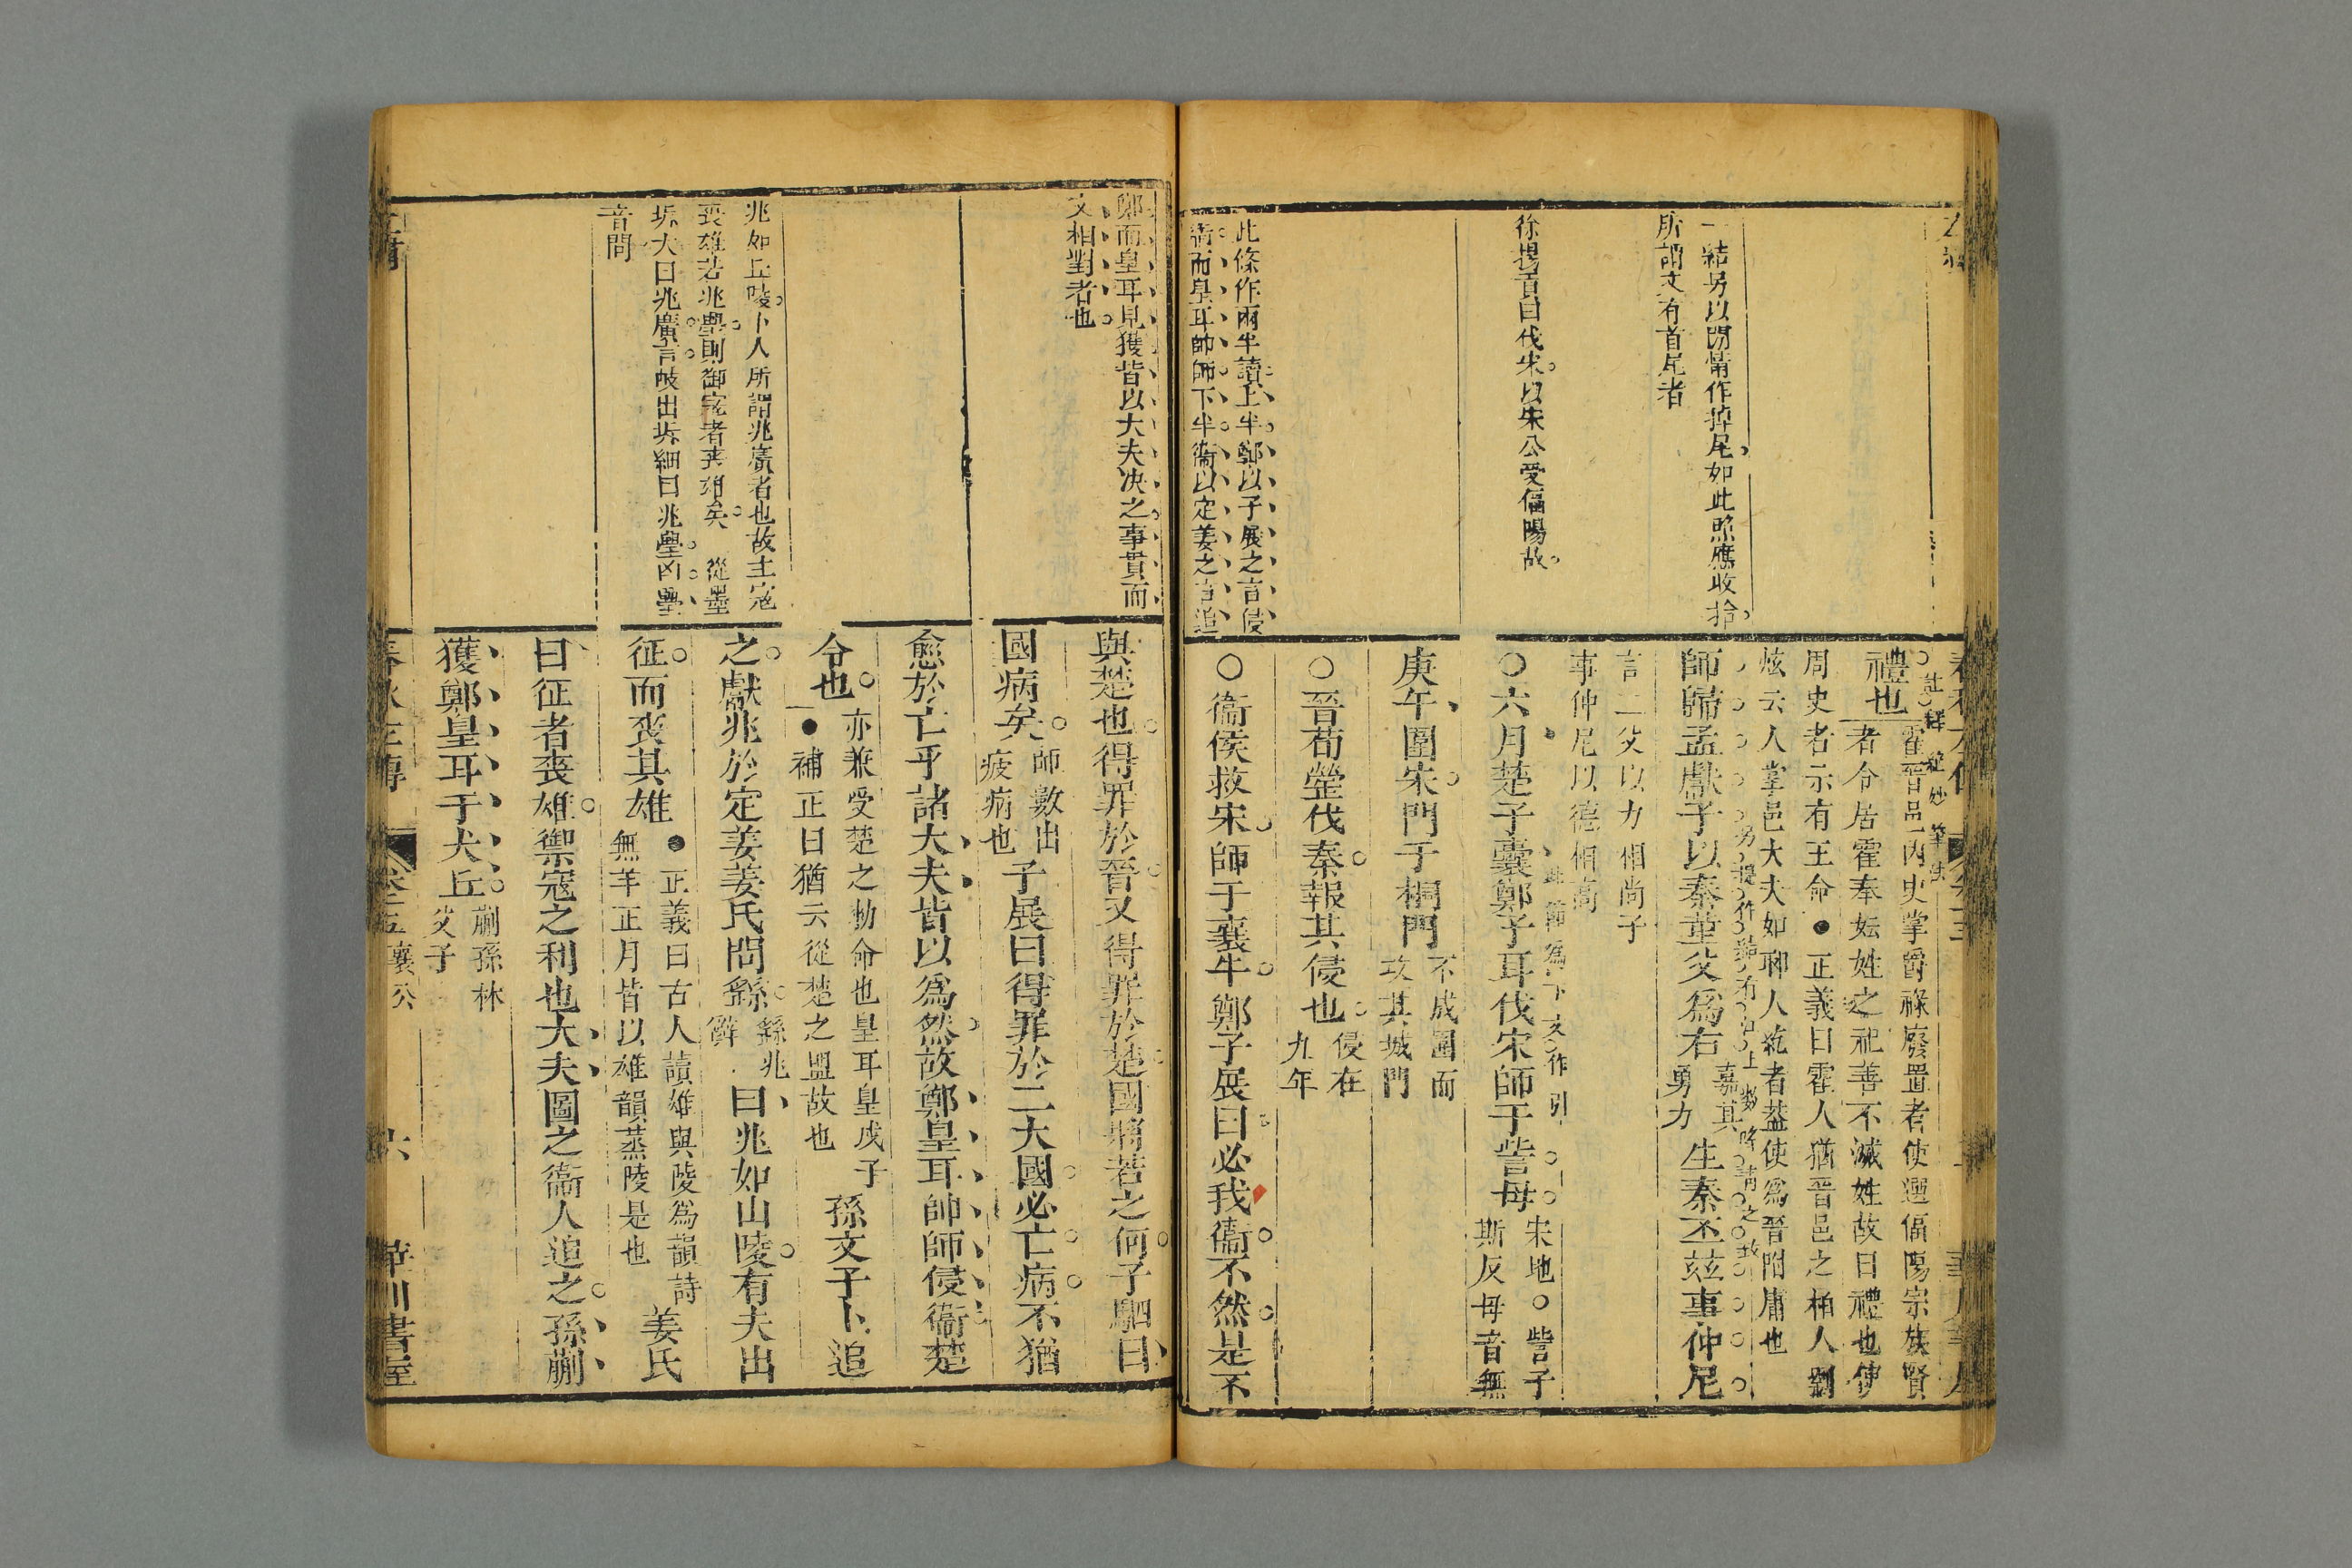 一結另以閒情作掉尾如此照應收拾
所謂文有首尾者
徐揚貢曰伐宋以宋公受偪陽故
此條作兩半讀上半鄭以子展之言侵
衞而皇耳帥師下半衞以定姜之言追
禮也
霍晉邑內史掌爵祿廢置者使選偪陽宗族賢
者令居霍奉妘姓之祀善不滅姓故曰禮也使
周史者示有王命●正義曰霍人猶晉邑之柏人劉
炫云人掌邑大夫如鄹人紇者蓋使爲晉附庸也
師歸孟獻子以秦堇父爲右
嘉其
勇力
生秦丕茲事仲尼
言二父以力相尚子
事仲尼以德相高
此節爲下文作引
○六月楚子囊鄭子耳伐宋師于訾毋
宋地○訾子
斯反毋音無
庚午圍宋門于桐門
不成圍而
攻其城門
○晉荀罃伐秦報其侵也
侵在
九年
○衞侯救宋師于襄牛鄭子展曰必我衞不然是不
鄭而皇耳見獲皆以大夫决之事貫而
文相對者也
兆如丘陵卜人所謂兆廣者也故主寇
喪雄若兆舋則御寇者喪雄矣 從墨
坼大曰兆廣言岐出坼細曰兆舋凶舋
音問
與楚也得罪於晉又得罪於楚國將若之何子駟曰
國病矣
師數出
疲病也
子展曰得罪於二大國必亡病不猶
愈於亡乎諸大夫皆以爲然故鄭皇耳帥師侵衞楚
令也
亦兼受楚之勑命也皇耳皇戌子
●補正曰猶云從楚之盟故也
孫文子卜追
之獻兆於定姜姜氏問繇
繇兆
辭
曰兆如山陵有夫出
征而喪其雄
●正義曰古人讀雄與陵爲韻詩
無羊正月皆以雄韻蒸陵是也
姜氏
曰征者喪雄禦寇之利也大夫圖之衞人追之孫蒯
獲鄭皇耳于犬丘
蒯孫林
父子
春秋左傳
卷十五襄公
六
華川書屋